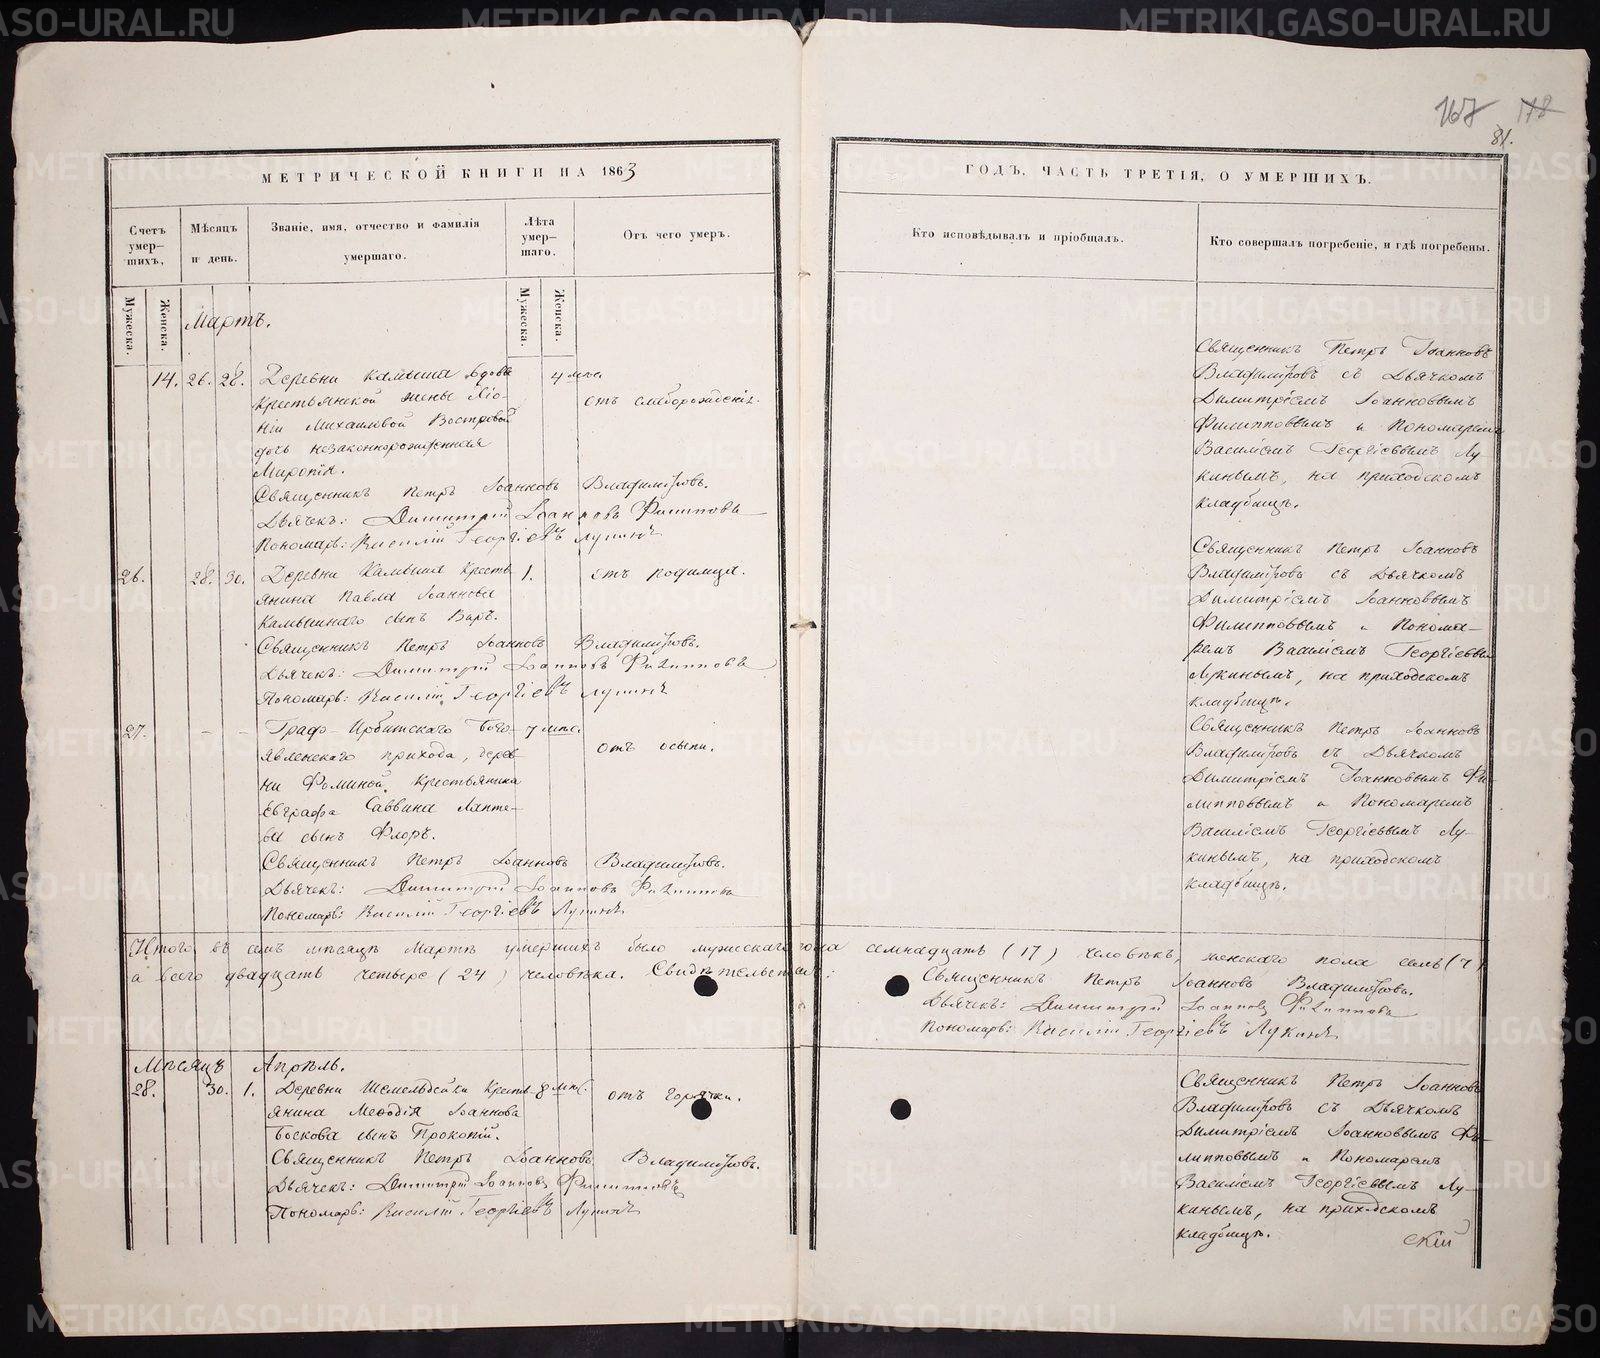 167 178
81.
МЕТРИЧЕСКОЙ КНИГИ НА 1863
ГОДЪ, ЧАСТЬ ТРЕТІЯ, О УМЕРШИХЪ.
Счетъ умер—шихъ.
Мѣсяцъ и день.
Званіе, имя, отчество и фамилія умершаго.
Лѣта умер—шаго.
Отъ чего умеръ.
Кто исповѣдывалъ и пріобщалъ.
Кто совершалъ погребеніе, и гдѣ погребены.
Мужеска.
Женска.
Мужеска.
Женска.
Мартъ.
14. 26. 28. Деревни Камыша вдовы 4 мѣс.
крестьянской жены
ніи Михаиловой Востровой
дочь незаконнорожденная
Миропія.
отъ слаборожденія.
Священникъ Петръ Іоанновъ Владиміровъ.
Дьячекъ: Димитрій Іоанновъ Филиповъ
Пономарь: Василій Георгіевъ Лукинъ
Священникъ Петръ Іоанновъ
Владиміровъ съ Дьячкомъ
Димитріемъ Іоанновымъ
Филипповымъ и Пономаремъ
Василіемъ Георгіевымъ Лу-
кинымъ, на приходскомъ
кладбищѣ.
26. 28. 30. Деревни Камыша кресть- 1. отъ родимца.
янина Павла Іоаннова
Камышнаго сынъ Варъ.
Священникъ Петръ Іоанновъ Владиміровъ.
Дьячекъ: Димитрій Іоанновъ Филипповъ
Пономарь: Василій Георгіевъ Лукинъ
Священникъ Петръ Іоанновъ
Владиміровъ съ Дьячкомъ
Димитріемъ Іоанновымъ
Филипповымъ и Понома-
ремъ Василіемъ Георгіевым
Лукинымъ, на приходскомъ
кладбищѣ.
27. – – Граф- Ирбитскаго Бого- 7 мѣс.
явленскаго прихода, дерев-
ни Фоминой, крестьянина
Евграфа Саввина Лапте-
ва сынъ Флоръ.
отъ осыпи.
Священникъ Петръ Іоанновъ Владиміровъ.
Дьячекъ: Димитрій Іоанновъ Филипповъ
Пономарь: Василій Георгіевъ Лукинъ
Священникъ Петръ Іоанновъ
Владиміровъ съ Дьячкомъ
Димитріемъ Іоанновымъ Фи-
липповымъ и Пономаремъ
Василіемъ Георгіевымъ Лу-
кинымъ, на приходскомъ
кладбищѣ.
Итого въ семъ мѣсяцѣ Мартѣ умершихъ было мужескаго пола семнадцать (17) человѣкъ, женскаго пола семь (7)
а всего двадцать четыре (24) человѣка. Свидѣтельствуемъ:
Священникъ Петръ Іоанновъ Владиміровъ.
Дьячекъ: Димитрій Іоанновъ Филипповъ
Пономарь: Василій Георгіевъ Лукинъ
Мѣсяцъ Апрѣль.
28. 30. 1. Деревни Шемельдейки крест- 8 мѣс. отъ горячки.
янина Меѳодія Іоаннова
Боскова сынъ Прокопій.
Священникъ Петръ Іоанновъ Владиміровъ.
Дьячекъ: Димитрій Іоанновъ Филипповъ
Пономарь: Василій Георгіевъ Лукинъ
Священникъ Петръ Іоанновъ
Владиміровъ съ Дьячкомъ
Димитріемъ Іоанновымъ Фи-
липповымъ и Пономаремъ
Василіемъ Георгіевымъ Лу-
кинымъ, на приходскомъ
кладбищѣ.
скій
METRIKI.GASO-URAL.RU